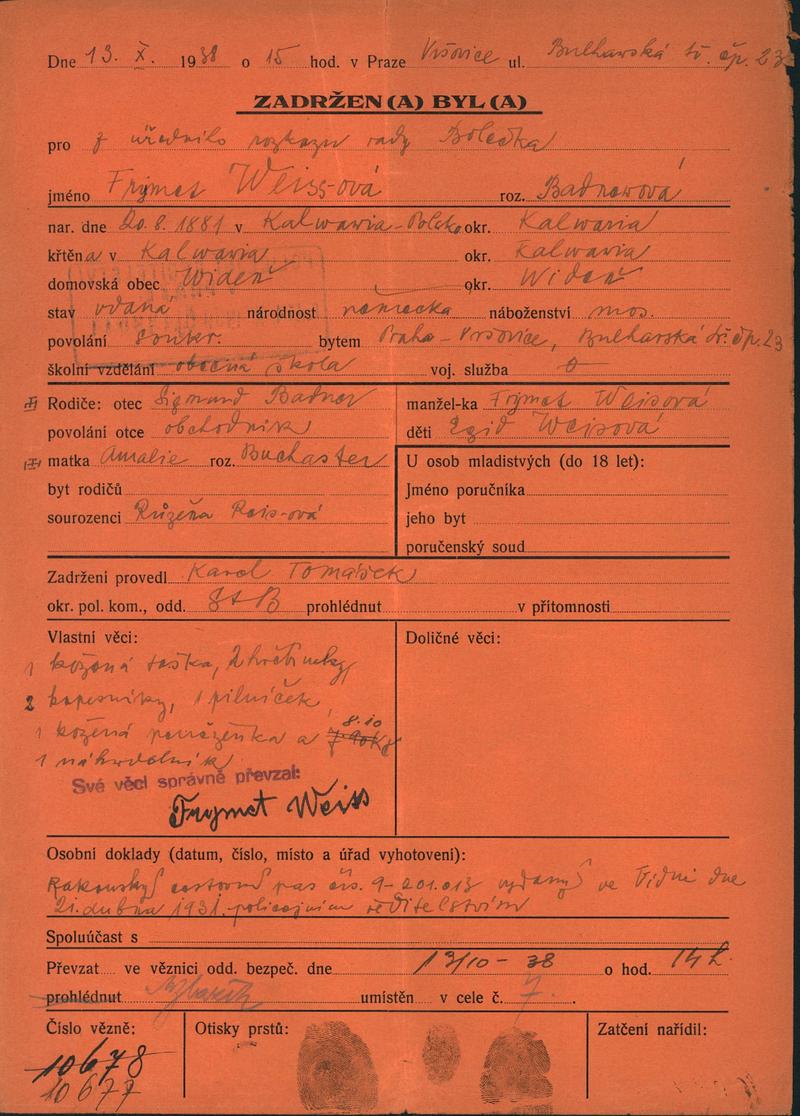 Dne 13. X. 1938 o 15 hod. v Praze Vršovice ul. Bulharská tř. čp. 23
ZADRŽEN(A) BYL(A)
pro z úředního rozkazu rady Bolečka
jméno Frymet Weiss-ová roz. Badnerová
nar. dne 20. 8. 1881 v Kalwaria-Polsko okr. Kalwaria
křtěna v Kalwaria okr. Kalwaria
domovská obec Wideň okr. Wideň
stav vdaná národnost německa náboženství mos.
povolání soukr. bytem Praha-Vršovice, Bulharská tř. čp. 23
školní vzdělání obecná škola voj. služba 0
Rodiče: otec Sigmund Badner
povolání otce obchodník
matka Amalie roz. Buchaster
byt rodičů
sourozenci Růžena Reis-ová
manžel-ka Frymet Weisová
děti Egid Weisová
U osob mladistvých (do 18 let):
Jméno poručníka
jeho byt
poručenský soud
Zadržení provedl Karel Tomášek
okr. pol. kom., odd. StB prohlédnut v přítomnosti
Vlastní věci:
1 kožená taška, 2 hřebínky
2 kapesníky, 1 pilníček,
1 kožená peněženka a 8.10
1 náhrdelník
Své věci správně převzal:
Frymet Weiss
Doličné věci:
Osobní doklady (datum, číslo, místo a úřad vyhotovení):
Rakouský cestovní pas čís. 9-201.013 vydaný ve Vídni dne
21. dubna 1931 policejním ředitelstvím
Spoluúčast s
Převzat ve věznici odd. bezpeč. dne 13/10-38 o hod. 14 h.
prohlédnut umístěn v cele č. 7.
Číslo vězně:
10678
10677
Otisky prstů:
Zatčení nařídil: